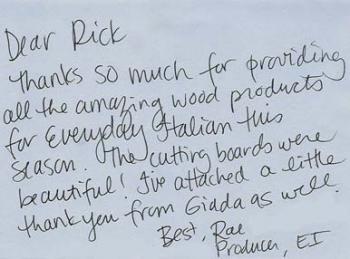 Dear Rick
Thanks so much for providing
all the amazing wood products
for Everyday Italian this
season. The cutting boards were
beautiful! I've attached a little
thank you from Giada as well.
Best, Rae
Producer, EI